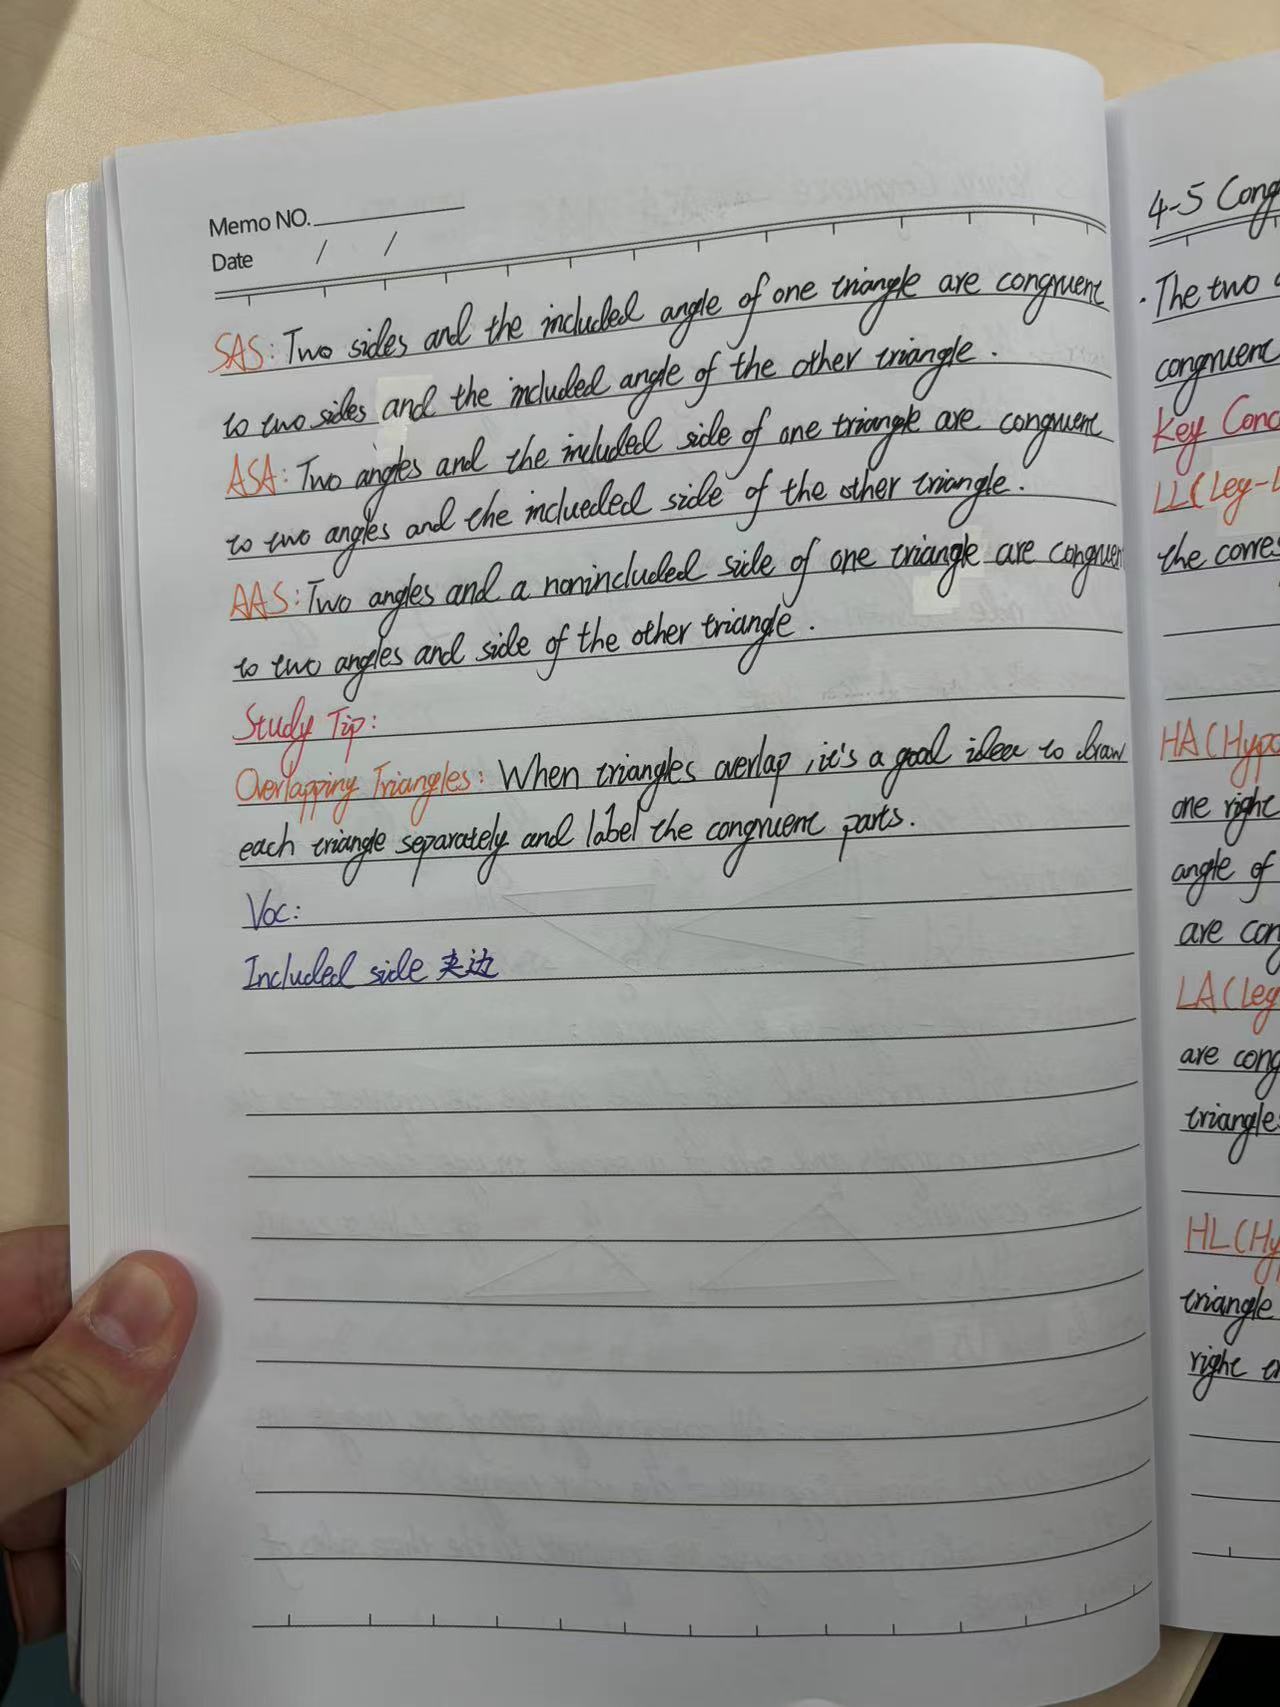 Memo NO.
Date / /
SAS: Two sides and the included angle of one triangle are congruent
to two sides and the included angle of the other triangle.
ASA: Two angles and the included side of one triangle are congruent
to two angles and the inclueded side of the other triangle.
AAS: Two angles and a nonincluded side of one triangle are congruen
to two angles and side of the other triangle.
Study Tip:
Overlapping Triangles: When triangles overlap, it's a good idea to draw
each triangle separately and label the congruent parts.
Voc:
Included side 夹边
4-5 Cong
· The two
congruent
Key Conc
LL (Leg-L
the corres
HA (Hypo
one right
angle of
are con
LA (Leg
are cong
triangles
HL (Hy
triangle
right